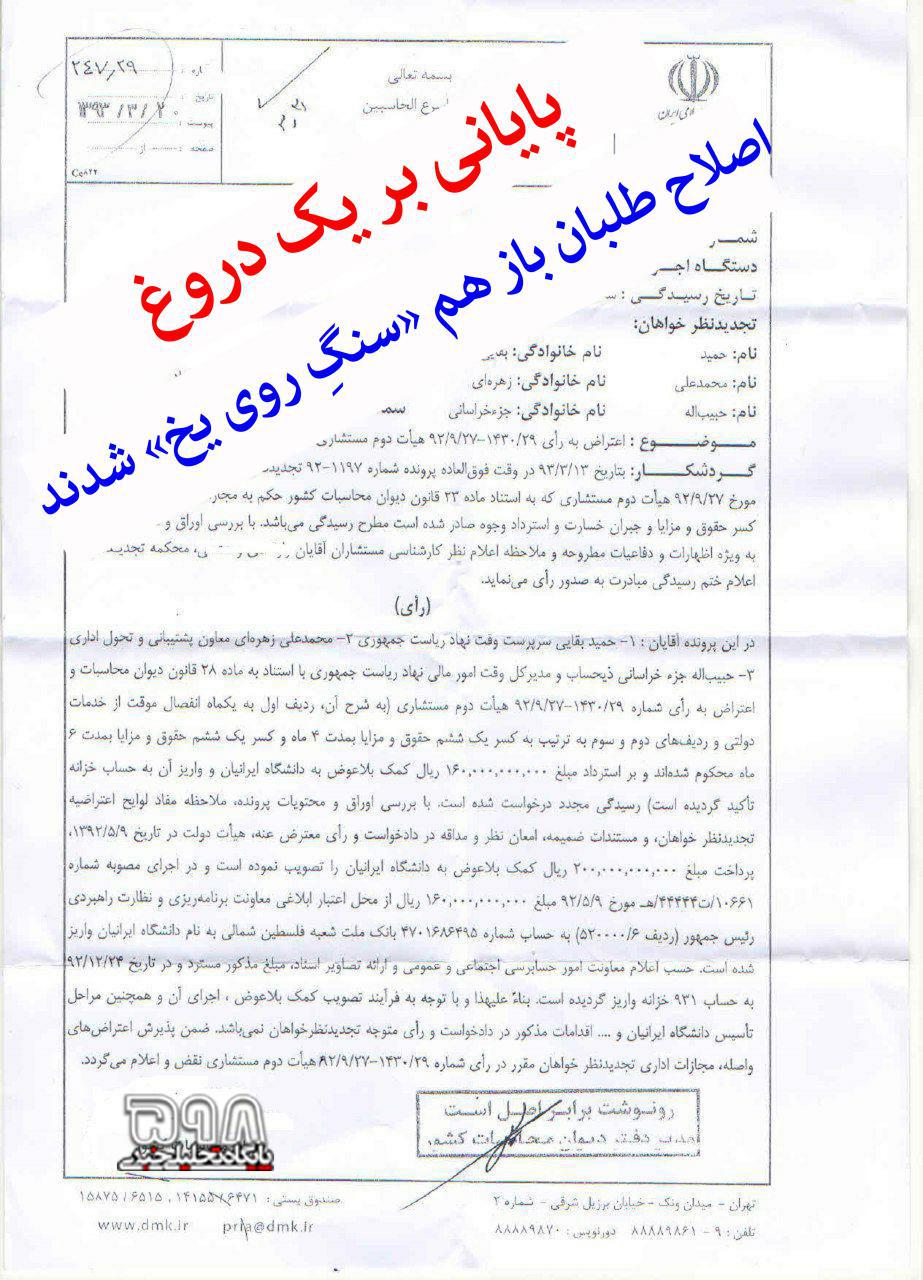 شماره: ۲۴۷/۲۹
تاریخ: ۱۳۹۳/۳/۲۰
پیوست:
صفحه: از
Ce۸۲۲
بسمه تعالی
الحاسبین
۳۱
۳۱
لامی ایران
پایانی بر یک دروغ
اصلاح طلبان باز هم «سنگِ روی یخ» شدند
شمــار
دستگـاه اجـر
تـاریخ رسیـدگـی :
تجدیدنظر خواهان:
نام: حمید نام خانوادگی: بقایی
نام: محمدعلی نام خانوادگی: زهره‌ای
نام: حبیب‌اله نام خانوادگی: جزءخراسانی سمـ
موضــوع : اعتراض به رأی ۱۴۳۰/۲۹-۹۲/۹/۲۷ هیأت دوم مستشاری
گردشکـار: بتاریخ ۹۳/۳/۱۳ در وقت فوق‌العاده پرونده شماره ۱۱۹۷-۹۲ تجدیدنـ
مورخ ۹۲/۹/۲۷ هیأت دوم مستشاری که به استناد ماده ۲۳ قانون دیوان محاسبات کشور حکم به مجاز
کسر حقوق و مزایا و جبران خسارت و استرداد وجوه صادر شده است مطرح رسیدگی می‌باشد. با بررسی اوراق و
به ویژه اظهارات و دفاعیات مطروحه و ملاحظه اعلام نظر کارشناسی مستشاران آقایان محکمه تجدیـد
اعلام ختم رسیدگی مبادرت به صدور رأی می‌نماید.
(رأی)
در این پرونده آقایان : ۱- حمید بقایی سرپرست وقت نهاد ریاست جمهوری ۲- محمدعلی زهره‌ای معاون پشتیبانی و تحول اداری
۳- حبیب‌اله جزء خراسانی ذیحساب و مدیرکل وقت امور مالی نهاد ریاست جمهوری با استناد به ماده ۲۸ قانون دیوان محاسبات و
اعتراض به رأی شماره ۱۴۳۰/۲۹-۹۲/۹/۲۷ هیأت دوم مستشاری (به شرح آن، ردیف اول به یکماه انفصال موقت از خدمات
دولتی و ردیف‌های دوم و سوم به ترتیب به کسر یک ششم حقوق و مزایا بمدت ۴ ماه و کسر یک ششم حقوق و مزایا بمدت ۶
ماه محکوم شده‌اند و بر استرداد مبلغ ۱۶۰,۰۰۰,۰۰۰,۰۰۰ ریال کمک بلاعوض به دانشگاه ایرانیان و واریز آن به حساب خزانه
تأکید گردیده است) رسیدگی مجدد درخواست شده است. با بررسی اوراق و محتویات پرونده، ملاحظه مفاد لوایح اعتراضیه
تجدیدنظر خواهان، و مستندات ضمیمه، امعان نظر و مداقه در دادخواست و رأی معترض عنه، هیأت دولت در تاریخ ۱۳۹۲/۵/۹،
پرداخت مبلغ ۲۰۰,۰۰۰,۰۰۰,۰۰۰ ریال کمک بلاعوض به دانشگاه ایرانیان را تصویب نموده است و در اجرای مصوبه شماره
۱۰۶۶۱/ت۴۴۴۴۴/هـ مورخ ۹۲/۵/۹ مبلغ ۱۶۰,۰۰۰,۰۰۰,۰۰۰ ریال از محل اعتبار ابلاغی معاونت برنامه‌ریزی و نظارت راهبردی
رئیس جمهور (ردیف ۵۲۰۰۰۰/۶) به حساب شماره ۴۷۰۱۶۸۶۴۹۵ بانک ملت شعبه فلسطین شمالی به نام دانشگاه ایرانیان واریز
شده است. حسب اعلام معاونت امور حسابرسی اجتماعی و عمومی و ارائه تصاویر اسناد، مبلغ مذکور مسترد و در تاریخ ۹۲/۱۲/۲۴
به حساب ۹۳۱ خزانه واریز گردیده است. بناءً علیهذا و با توجه به فرآیند تصویب کمک بلاعوض ، اجرای آن و همچنین مراحل
تأسیس دانشگاه ایرانیان و .... اقدامات مذکور در دادخواست و رأی متوجه تجدیدنظرخواهان نمی‌باشد. ضمن پذیرش اعتراض‌های
واصله، مجازات اداری تجدیدنظر خواهان مقرر در رأی شماره ۱۴۳۰/۲۹-۹۲/۹/۲۷ هیأت دوم مستشاری نقض و اعلام می‌گردد.
رونوشت برابر اصل است
مدیر دفتر دیوان محاسبات کشور
۵۹۸
پایگاه تحلیلی خبری
تهران - میدان ونک - خیابان برزیل شرقی - شماره ۲
تلفن : ۹ - ۸۸۸۸۹۸۶۱ دورنویس : ۸۸۸۸۹۸۷۰
صندوق پستی : ۱۴۱۵۵/۶۴۷۱ , ۱۵۸۷۵/۶۵۱۵
www.dmk.ir pria@dmk.ir